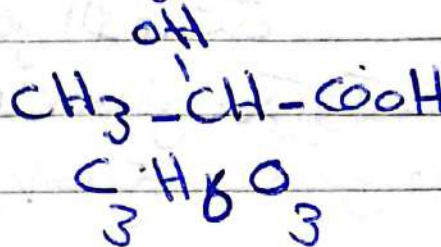 OH
CH3-CH-COOH
C3H6O3